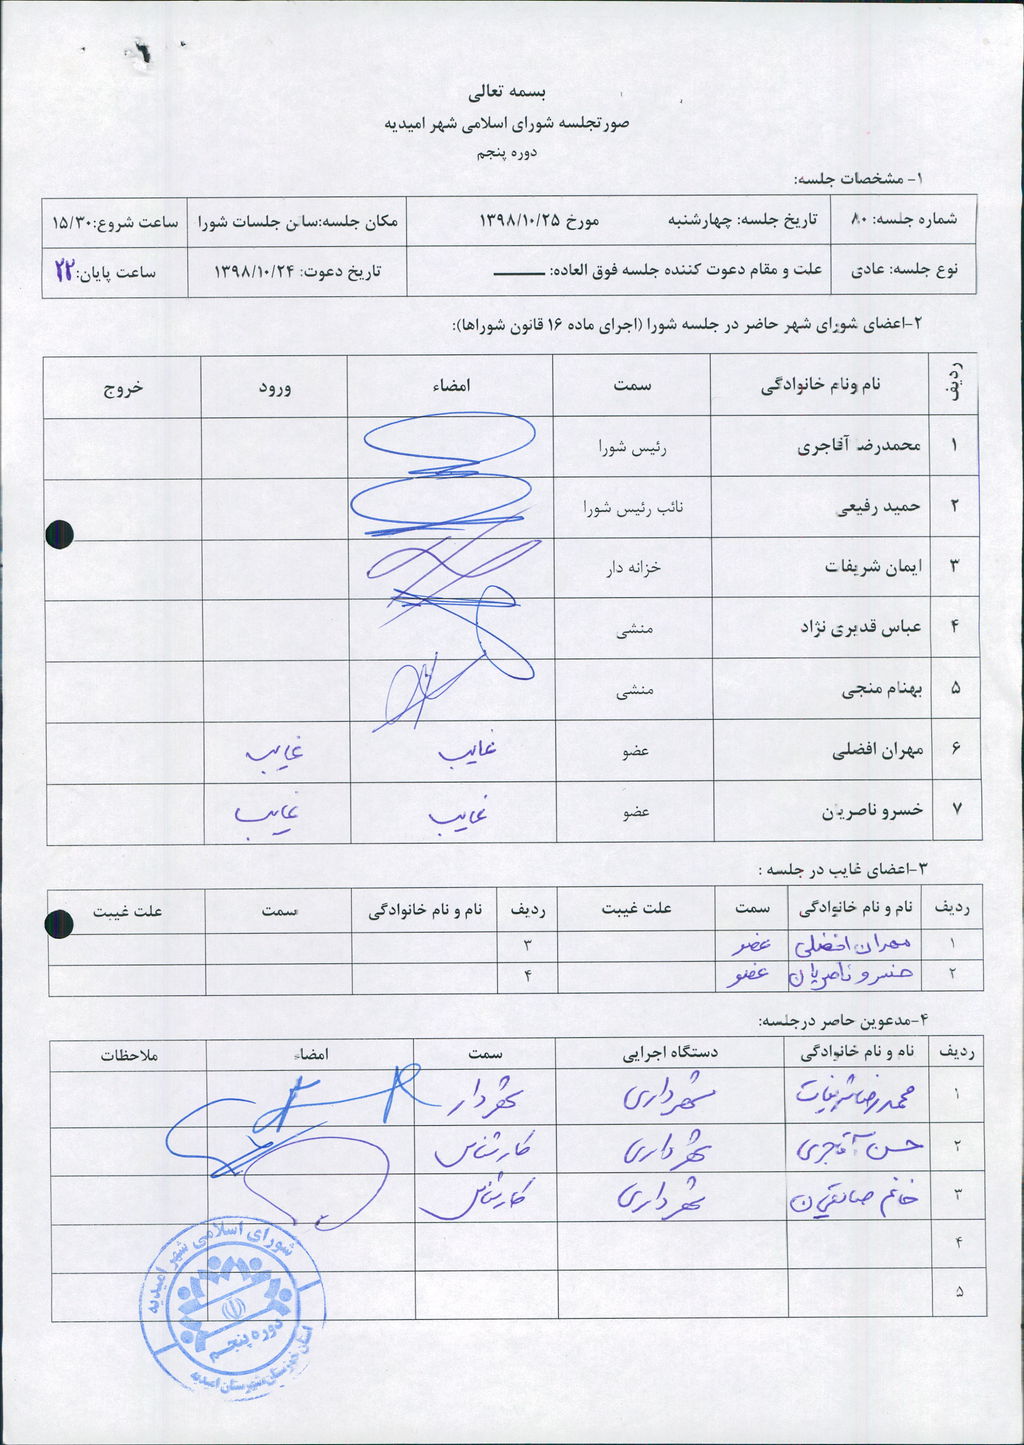 بسمه تعالی
صورتجلسه شورای اسلامی شهر امیدیه
دوره پنجم
۱- مشخصات جلسه:
شماره جلسه: ۸۰ تاریخ جلسه: چهارشنبه مورخ ۱۳۹۸/۱۰/۲۵ مکان جلسه:سالن جلسات شورا ساعت شروع:۱۵/۳۰
نوع جلسه: عادی علت و مقام دعوت کننده جلسه فوق العاده: ــــــــ تاریخ دعوت: ۱۳۹۸/۱۰/۲۴ ساعت پایان:۲۲
۲-اعضای شورای شهر حاضر در جلسه شورا (اجرای ماده ۱۶ قانون شوراها):
ردیف نام ونام خانوادگی سمت امضاء ورود خروج
۱ محمدرضا آقاجری رئیس شورا
۲ حمید رفیعی نائب رئیس شورا
۳ ایمان شریفات خزانه دار
۴ عباس قدیری نژاد منشی
۵ بهنام منجی منشی
۶ مهران افضلی عضو غایب غایب
۷ خسرو ناصریان عضو غایب غایب
۳-اعضای غایب در جلسه :
ردیف نام و نام خانوادگی سمت علت غیبت ردیف نام و نام خانوادگی سمت علت غیبت
۱ مهران افضلی عضو ۳
۲ خسرو ناصریان عضو ۴
۴-مدعوین حاضر درجلسه:
ردیف نام و نام خانوادگی دستگاه اجرایی سمت امضاء ملاحظات
۱ محمدرضا شریفات شهرداری شهردار
۲ حسن آقاجری شهرداری کارشناس
۳ خانم صادقیان شهرداری کارشناس
۴
۵
شورای اسلامی شهر امیدیه
دوره پنجم
استان خوزستان شهرستان امیدیه